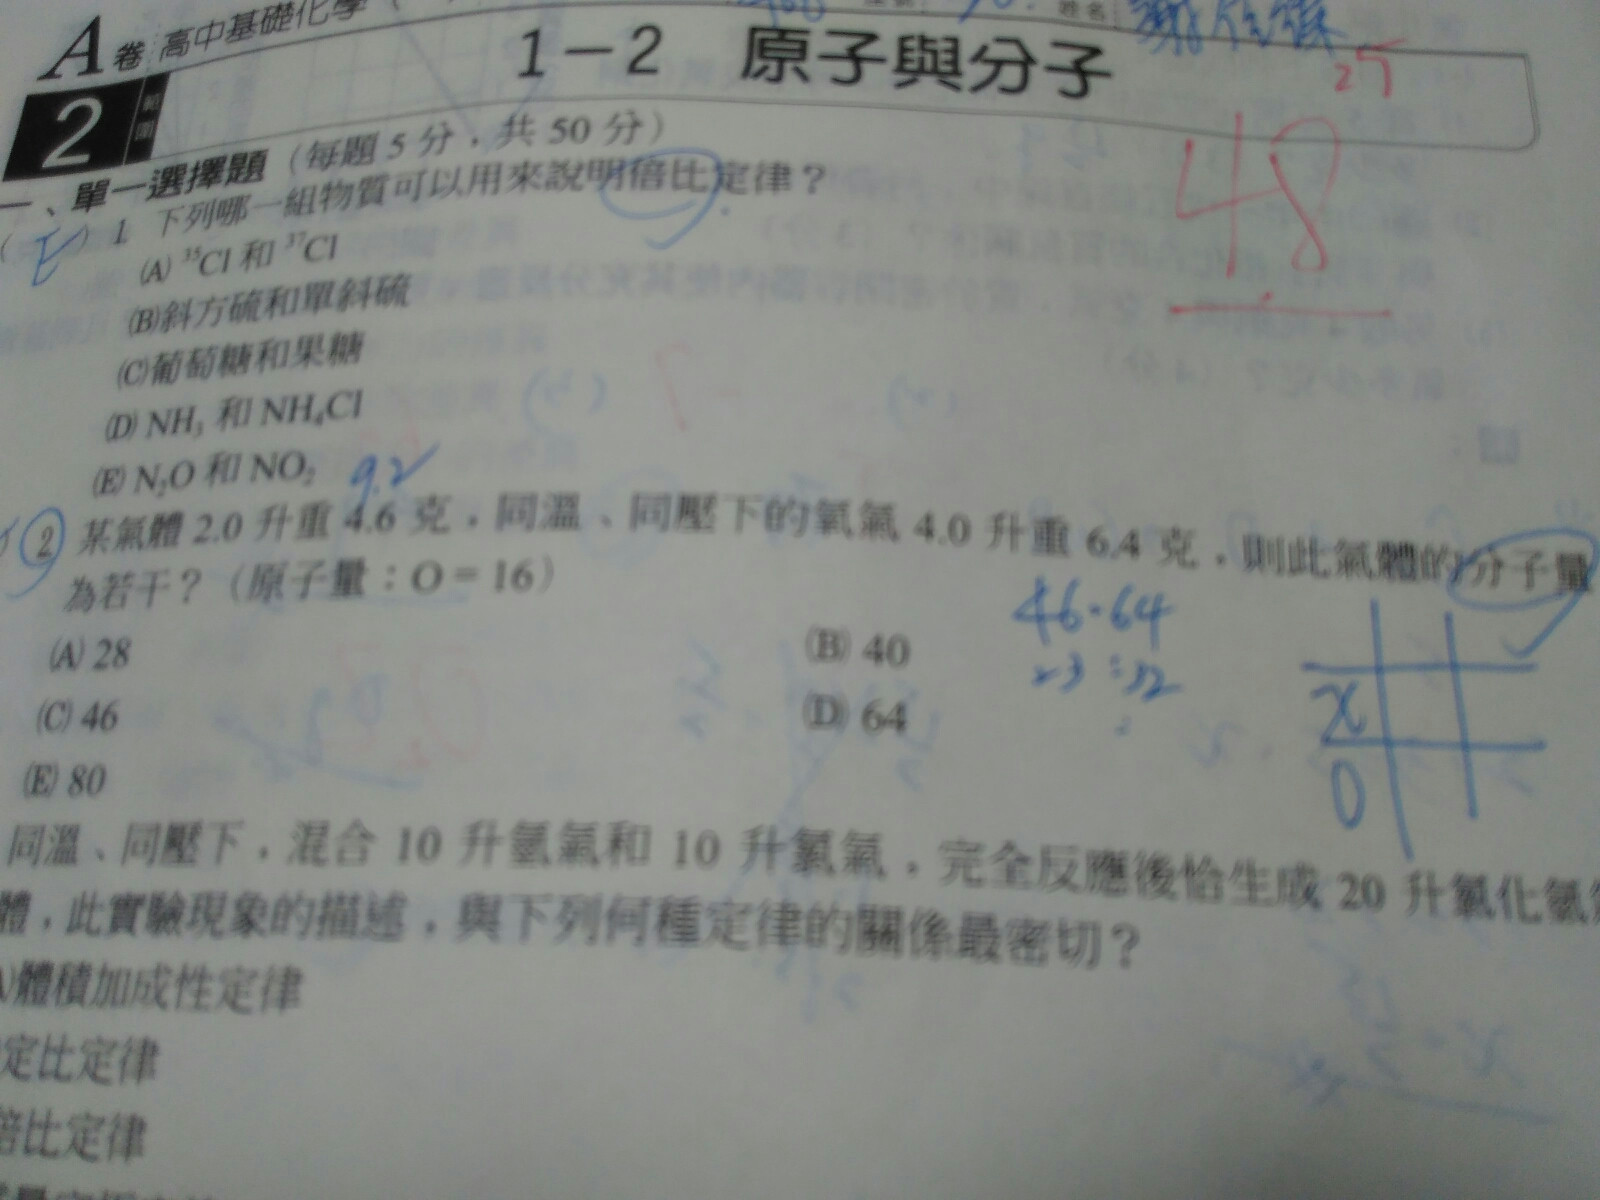 A卷 高中基礎化學
姓名
25
2 範圍
1－2 原子與分子
48
一、單一選擇題（每題 5 分，共 50 分）
( E ) 1 下列哪一組物質可以用來說明倍比定律？
(A) ³⁵Cl 和 ³⁷Cl
(B)斜方硫和單斜硫
(C)葡萄糖和果糖
(D) NH₃ 和 NH₄Cl
(E) N₂O 和 NO₂
9.2
2 某氣體 2.0 升重 4.6 克，同溫、同壓下的氧氣 4.0 升重 6.4 克，則此氣體的分子量
為若干？（原子量：O = 16）
46:64
23:32
(A) 28
(B) 40
(C) 46
(D) 64
(E) 80
x
O
同溫、同壓下，混合 10 升氫氣和 10 升氯氣，完全反應後恰生成 20 升氯化氫氣
體，此實驗現象的描述，與下列何種定律的關係最密切？
A)體積加成性定律
定比定律
倍比定律